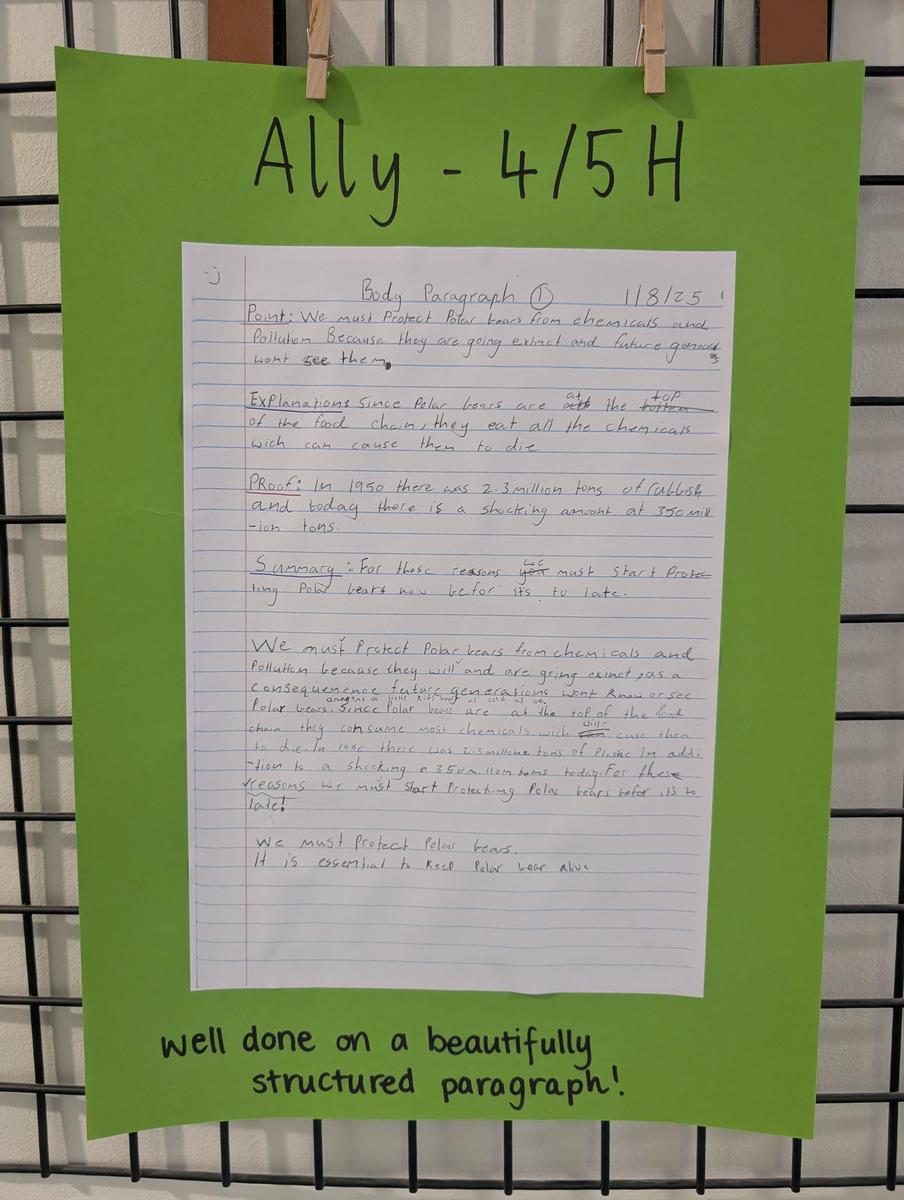 Ally - 4/5 H
:)
Body Paragraph ① 1/8/25
Point: We must Protect Polar bears from chemicals and
Pollution Because they are going extinct and future
wont see them.
Explanation: Since Polar bears are at the top
of the food chain, they eat all the chemicals
wich can cause them to die
PRoof: In 1950 there was 2.3 million tons of rubbish
and today there is a shocking amount at 350 mill
-ion tons.
Summary: For these reasons we must Start Protec
ting Polar bears now befor its to late.
We must Protect Polar bears from chemicals and
Pollution because they will and are going exinct, as a
consequenence future generations wont know or see
Polar bears. Since Polar bears are at the top of the food
chain they consume most chemicals wich will cuse them
to die. In 1950 there was 2.3 millone tons of Plastic in addi
-tion to a shocking 350 millon tons today. For these
reasons we must start Protecting Polar bears befor it's to
late!
We must Protect Polar bears.
It is essential to keep Polar bear alive
well done on a beautifully
structured paragraph!